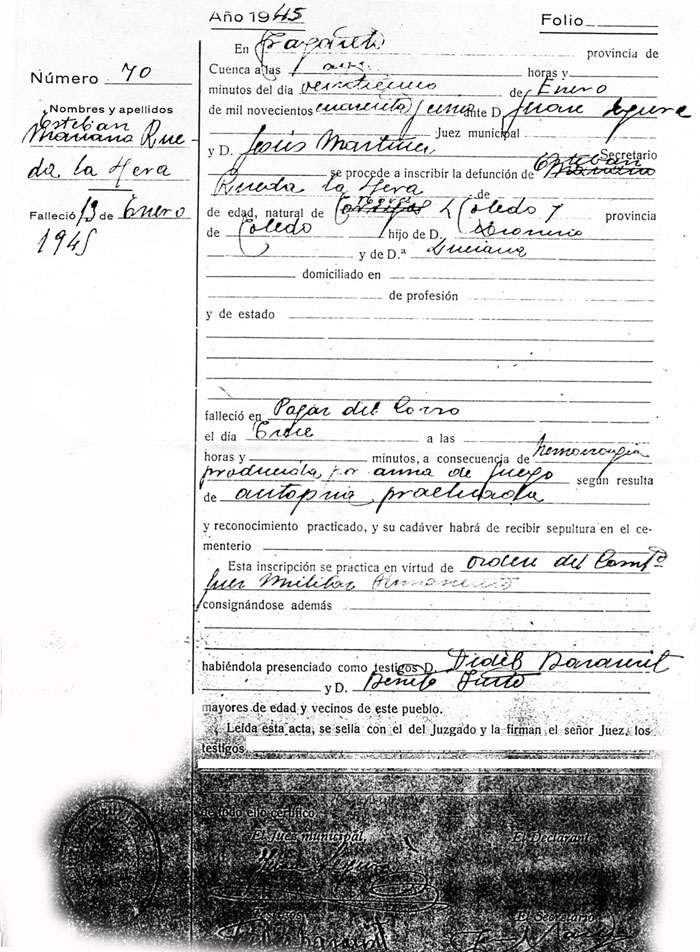 Año 1945 Folio
Número 70
Nombres y apellidos
Esteban
Mariano Rue-
da la Hera
Falleció 13 de Enero
1945
En provincia de
Cuenca a las 1 horas y
minutos del día veintiuno de Enero
de mil novecientos cuarenta y cinco ante D. Juan
Juez municipal
y D. Jesús Martínez Secretario
se procede a inscribir la defunción de Esteban
Rueda la Hera de
de edad, natural de Toledo provincia
de Toledo hijo de D. Dionisio
y de D.ª Luciana
domiciliado en
de profesión
y de estado
falleció en Pajar del Corro
el día Trece a las
horas y minutos, a consecuencia de hemorragia
producida por arma de fuego según resulta
de autopsia practicada
y reconocimiento practicado, y su cadáver habrá de recibir sepultura en el ce-
menterio
Esta inscripción se practica en virtud de orden del Comte
Juez Militar
consignándose además
habiéndola presenciado como testigos D.
y D. Benito Justo
mayores de edad y vecinos de este pueblo.
Leída esta acta, se sella con el del Juzgado y la firman el señor Juez, los
testigos
de todo ello certifico.
El Juez municipal, El Declarante
Testigos El Secretario